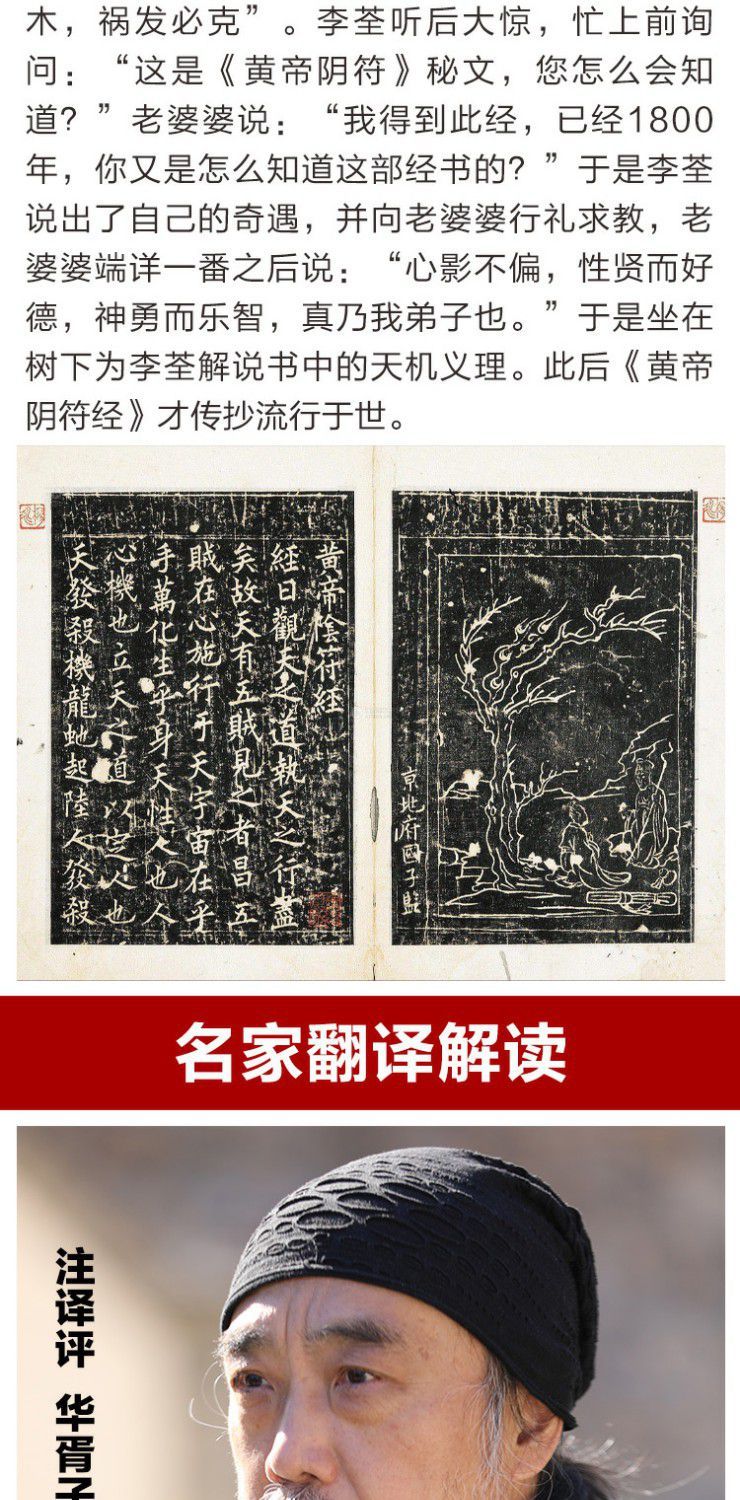 木，祸发必克”。李荃听后大惊，忙上前询
问：“这是《黄帝阴符》秘文，您怎么会知
道？”老婆婆说：“我得到此经，已经1800
年，你又是怎么知道这部经书的？”于是李荃
说出了自己的奇遇，并向老婆婆行礼求教，老
婆婆端详一番之后说：“心影不偏，性贤而好
德，神勇而乐智，真乃我弟子也。”于是坐在
树下为李荃解说书中的天机义理。此后《黄帝
阴符经》才传抄流行于世。
京兆府國子監
黄帝陰符經
經曰觀天之道執天之行盡
矣故天有五賊見之者昌五
賊在心施行于天宇宙在乎
手萬化生乎身天性人也人
心機也立天之道以定人也
天發殺機龍虵起陸人發殺
名家翻译解读
注译评 华胥子